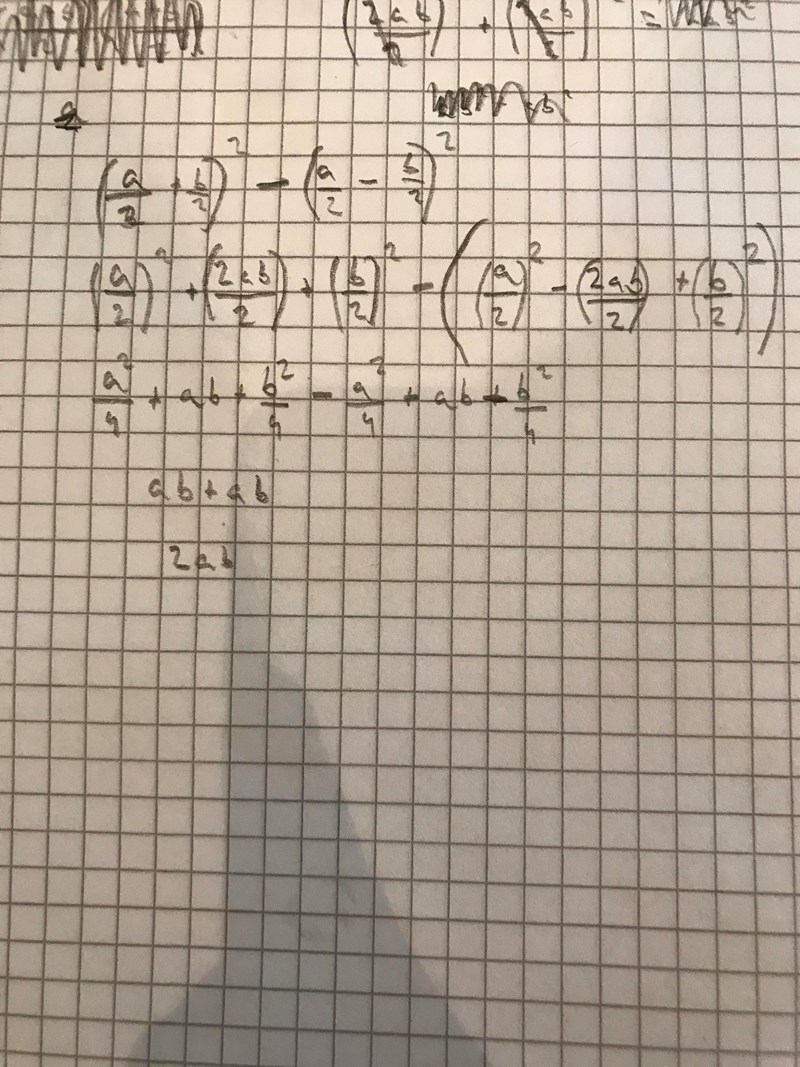 (2ab/2) + (2ab/2) =
(a/2 + b/2)² - (a/2 - b/2)²
(a/2)² + (2ab/2) + (b/2)² - ((a/2)² - (2ab/2) + (b/2)²)
a²/4 + ab + b²/4 - a²/4 + ab - b²/4
ab + ab
2ab